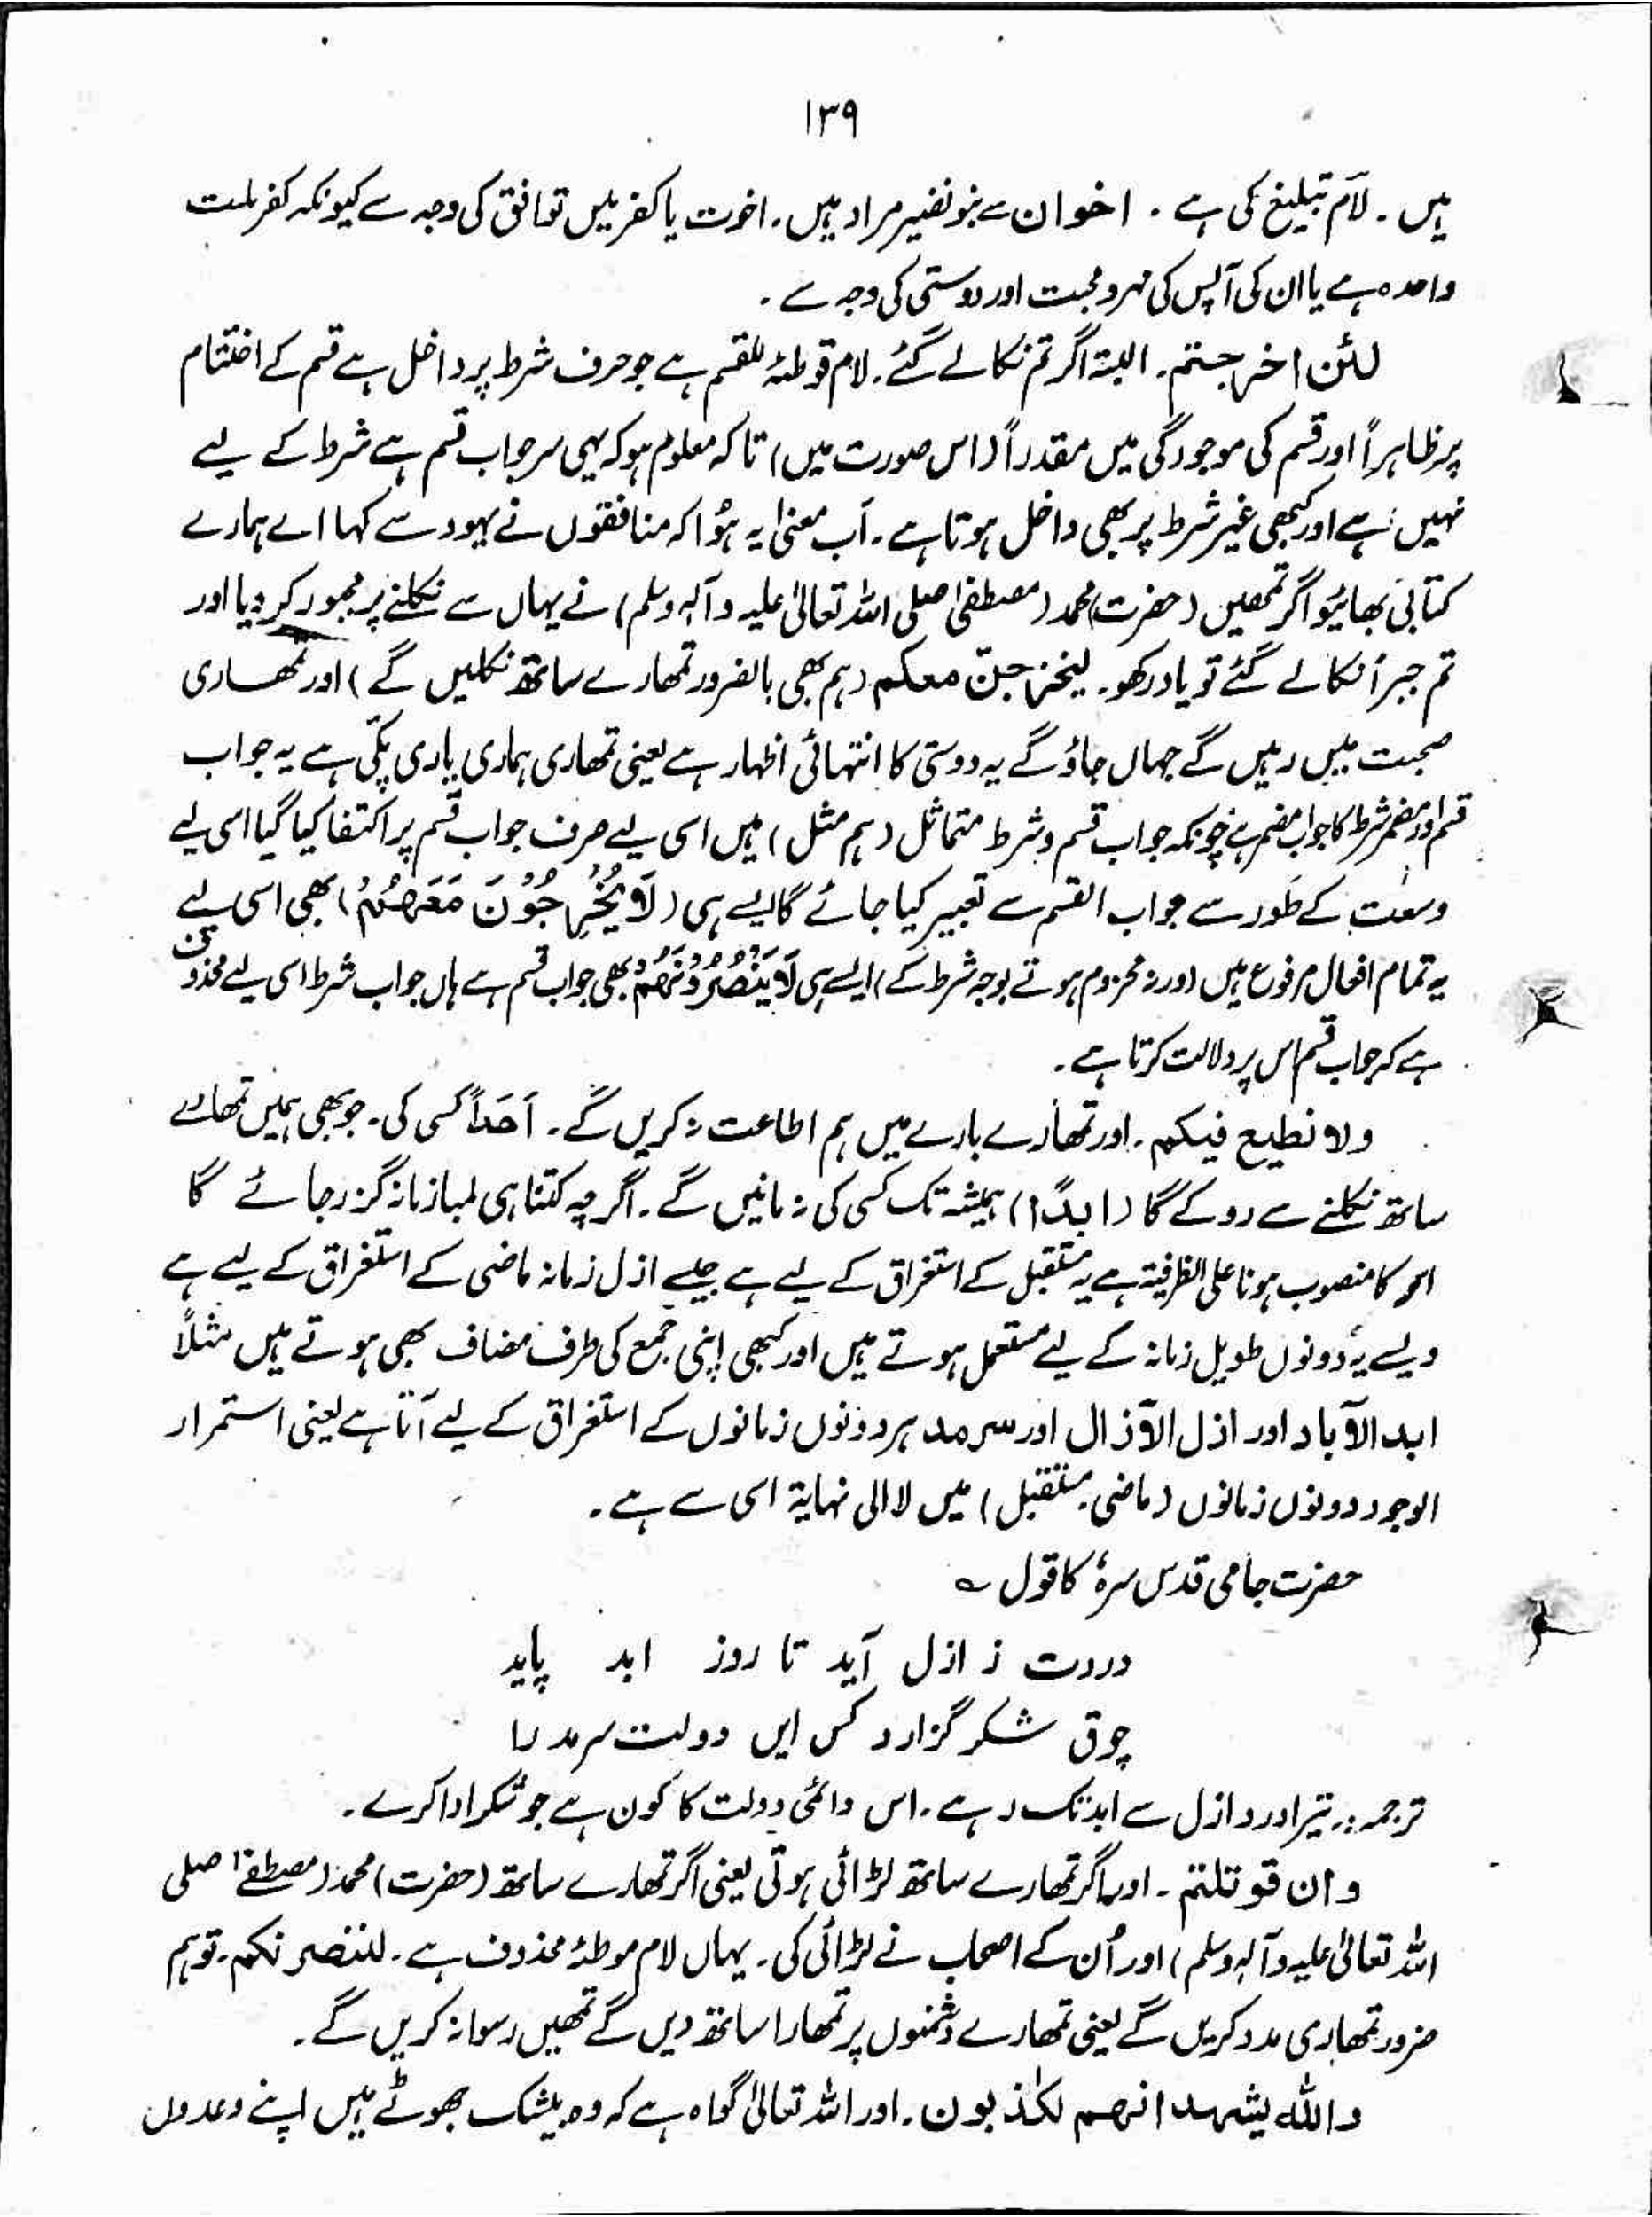 ۱۳۹
ہیں ۔ لآم تبلیغ کی ہے ۔ اخوان سے بنو نضیر مراد ہیں ۔ اخوت یا کفر میں توافق کی وجہ سے کیونکہ کفر ملت
واحدہ ہے یا ان کی آپس کی مہر و محبت اور دوستی کی وجہ سے ۔
لئن اخرجتم ۔ البتہ اگر تم نکالے گئے ۔ لام توطئۂ للقسم ہے جو حرف شرط پر داخل ہے قسم کے اختتام
پر ظاہراً اور قسم کی موجودگی میں مقدراً (اس صورت میں) تاکہ معلوم ہو کہ یہی جواب قسم ہے شرط کے لیے
نہیں ہے اور کبھی غیر شرط پر بھی داخل ہوتا ہے ۔ اَب معنیٰ یہ ہُوا کہ منافقوں نے یہود سے کہا اے ہمارے
کتابی بھائیو اگر تمھیں (حضرت) محمد (مصطفیٰ صلی اللہ تعالیٰ علیہ وآلہٖ وسلم) نے یہاں سے نکلنے پر مجبور کر دیا اور
تم جبراً نکالے گئے تو یاد رکھو ۔ لیخرجن معکم (ہم بھی بالضرور تمھارے ساتھ نکلیں گے) اور تمھاری
صحبت میں رہیں گے جہاں جاؤ گے یہ دوستی کا انتہائی اظہار ہے یعنی تمھاری ہماری یاری پکّی ہے یہ جواب
قسم اور مضمر شرط کا جواب مضمر ہے چونکہ جواب قسم و شرط متماثل (ہم مثل) ہیں اسی لیے صرف جواب قسم پر اکتفا کیا گیا اسی لیے
وسعت کے طور سے جواب القسم سے تعبیر کیا جائے گا ایسے ہی (لَا یُخْرِجُوْنَ مَعَھُمْ) بھی اسی لیے
یہ تمام افعال مرفوع ہیں (ورنہ مجزوم ہوتے بوجہ شرط کے) ایسے ہی لَا یَنْصُرُوْنَھُمْ بھی جواب قسم ہے ہاں جواب شرط اسی لیے محذوف
ہے کہ جواب قسم اس پر دلالت کرتا ہے ۔
ولا نطیع فیکم ۔ اور تمھارے بارے میں ہم اطاعت نہ کریں گے ۔ اَحَداً کسی کی ۔ جو بھی ہمیں تمھارے
ساتھ نکلنے سے روکے گا (ابدًا) ہمیشہ تک کسی کی نہ مانیں گے ۔ اگرچہ کتنا ہی لمبا زمانہ گزر جائے گا
اس کا منصوب ہونا علی الظرفیۃ ہے یہ مستقبل کے استغراق کے لیے ہے جیسے ازل زمانہ ماضی کے استغراق کے لیے ہے
ویسے یہ دونوں طویل زمانہ کے لیے مستعمل ہوتے ہیں اور کبھی اپنی جمع کی طرف مضاف بھی ہوتے ہیں مثلاً
ابد الآباد اور ازل الآزال اور سرمد ہر دونوں زمانوں کے استغراق کے لیے آتا ہے یعنی استمرار
الوجود دونوں زمانوں (ماضی ۔ مستقبل) میں لا الی نہایۃ اسی سے ہے ۔
حضرت جامی قدس سرہٗ کا قول ؎
دردت ز ازل آید تا روز ابد پاید
چوں شکر گزارد کس ایں دولت سرمد را
ترجمہ : تیرا درد ازل سے ابد تک رہے ۔ اس دائمی دولت کا کون ہے جو شکر ادا کرے ۔
وان قوتلتم ۔ اور اگر تمھارے ساتھ لڑائی ہوتی یعنی اگر تمھارے ساتھ (حضرت) محمد (مصطفےٰ صلی
اللہ تعالیٰ علیہ وآلہٖ وسلم) اور اُن کے اصحاب نے لڑائی کی ۔ یہاں لام موطئۂ محذوف ہے ۔ لننصرنکم ۔ تو ہم
ضرور تمھاری مدد کریں گے یعنی تمھارے دشمنوں پر تمھارا ساتھ دیں گے تمھیں رسوا نہ کریں گے ۔
واللہ یشہد انھم لکٰذبون ۔ اور اللہ تعالیٰ گواہ ہے کہ وہ بیشک جھوٹے ہیں اپنے وعدوں